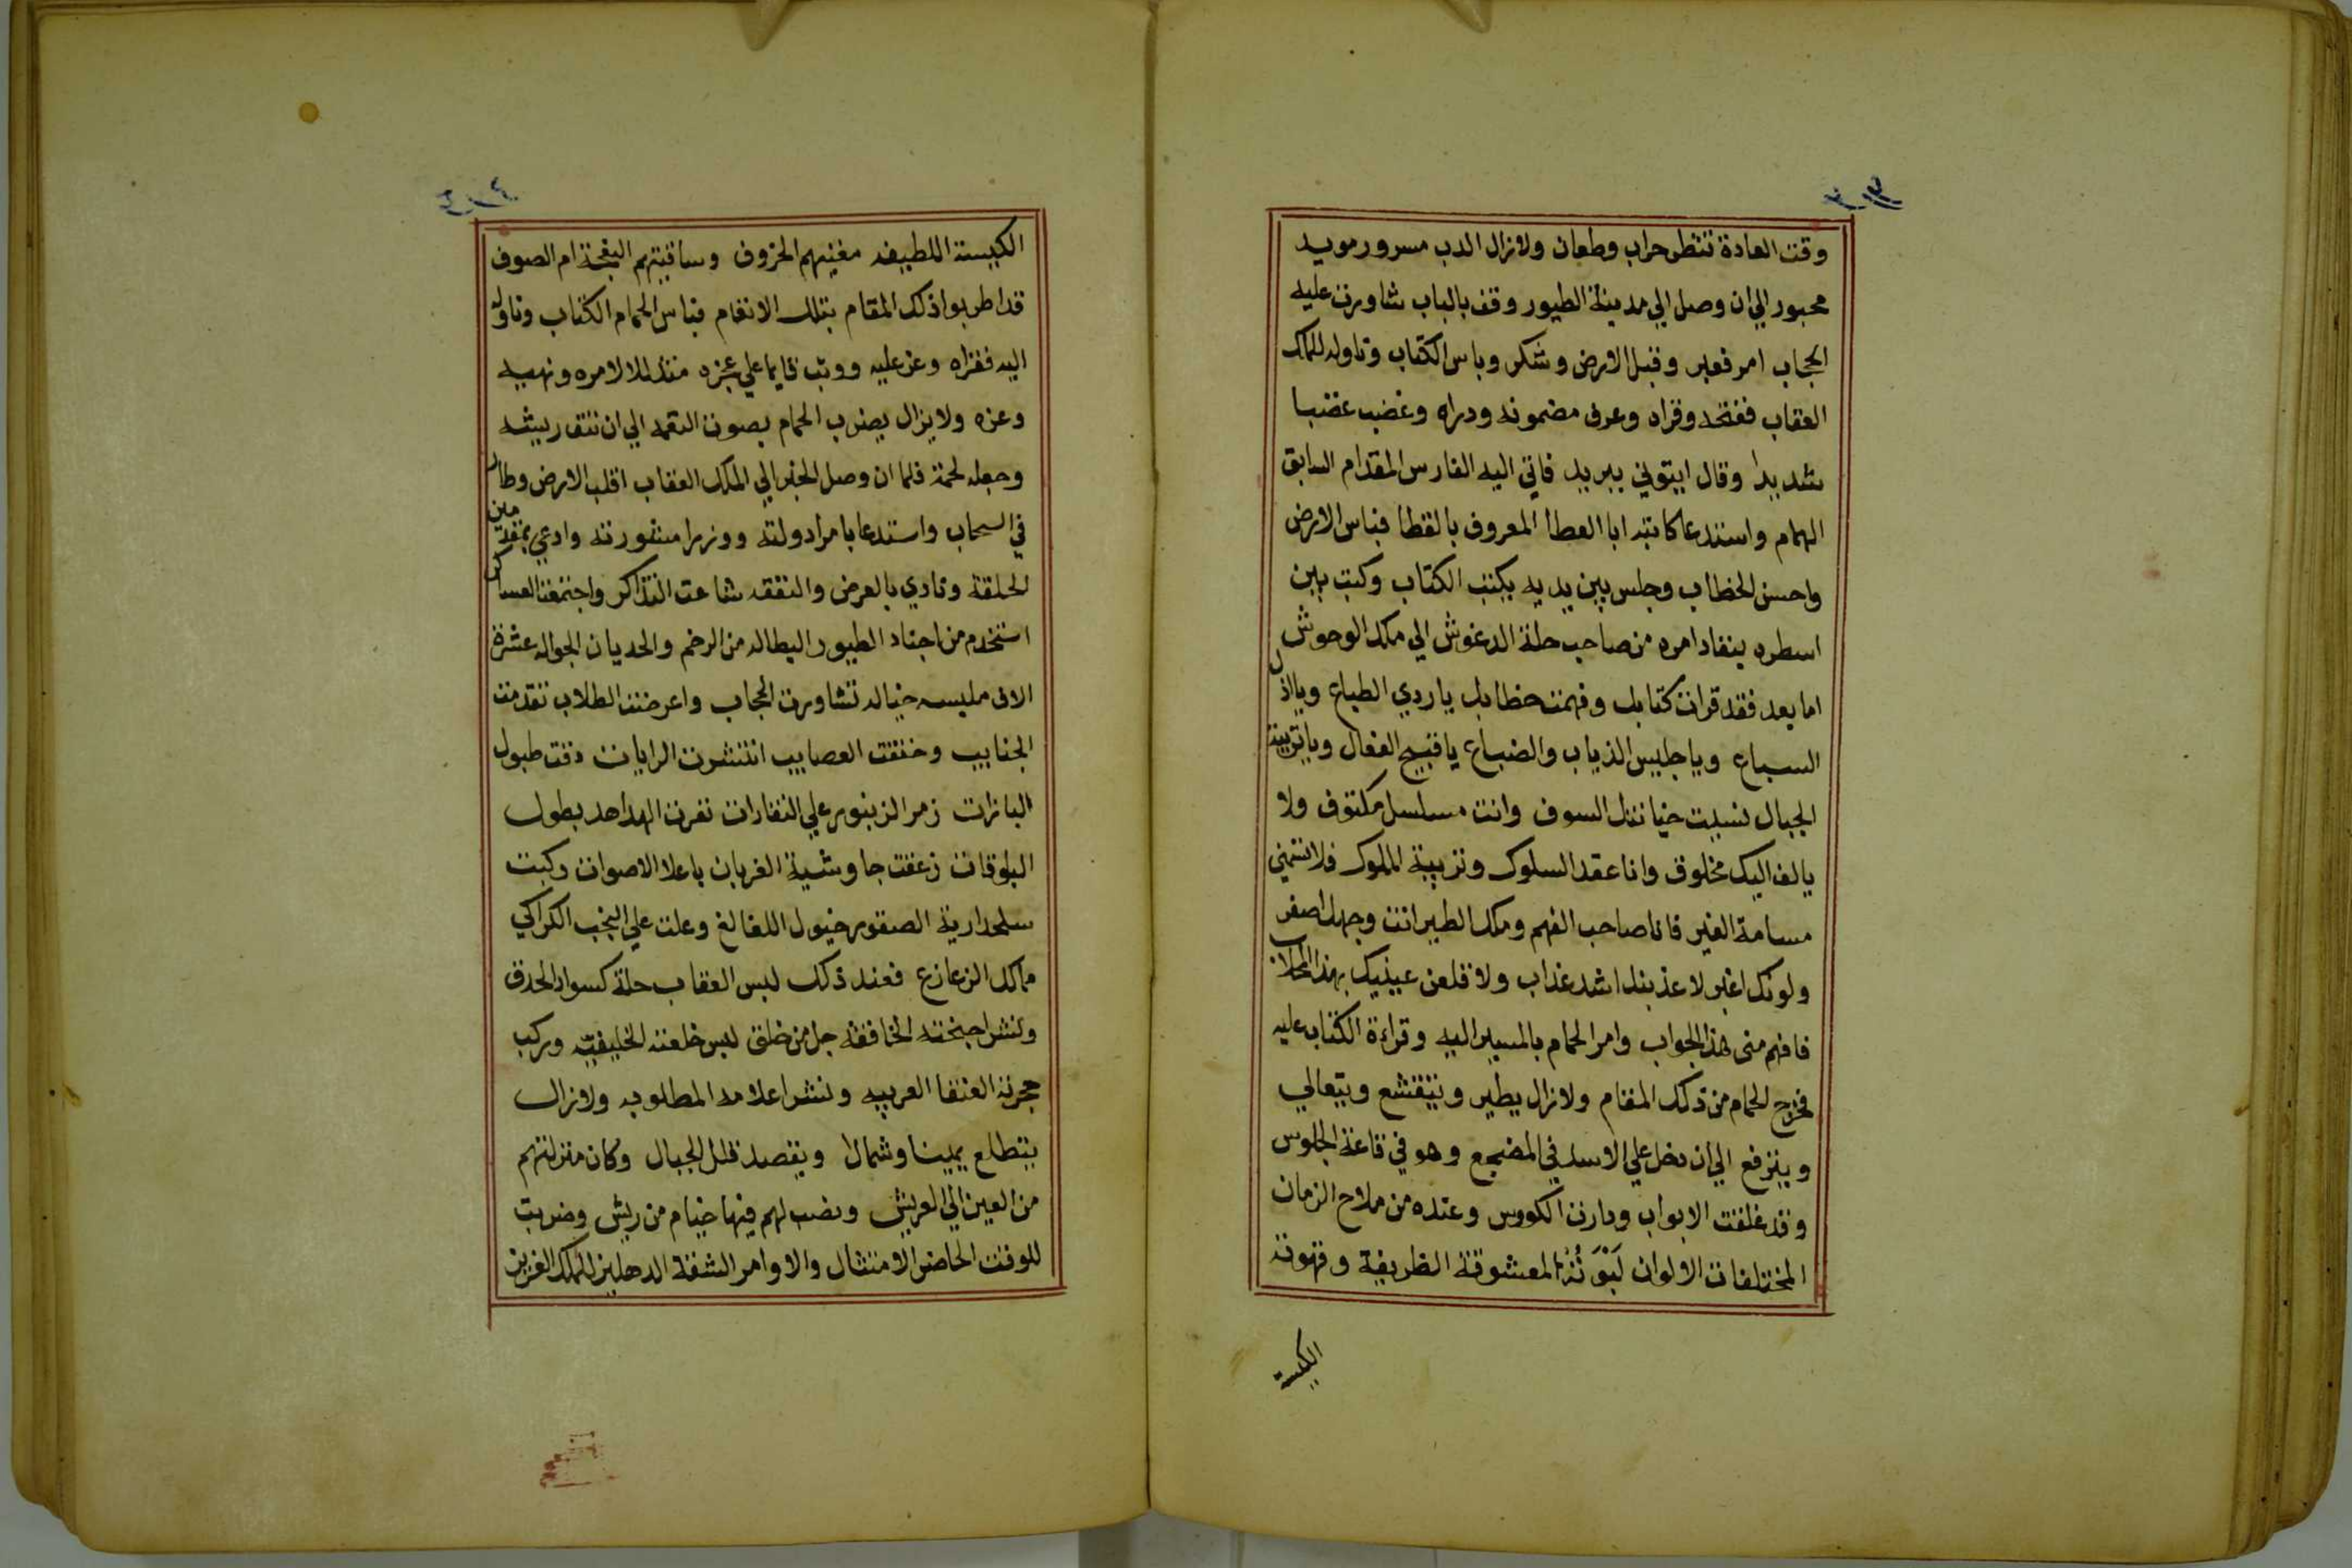 وقت العادة تنظر حراب وطعان ولازال الدب مسرور مويد
محبور الي ان وصل الي مدينة الطيور وقف بالباب شاورت عليه
الحجاب امر فعبر وقبل الارض وشكر وباس الكتاب وناوله للملك
العقاب ففتحه وقراه وعرف مضمونه ودراه وغضب غضبا
شديدا وقال ايتوني ببريد فاتي اليه الفارس المقدام السابق
الهمام واستدعا كاتبه ابا العطا المعروف بالقطا فباس الارض
واحسن الخطاب وجلس بين يديه يكتب الكتاب وكتب بين
اسطره ينفاد امره من صاحب حلة الدغوش الي ملك الوحوش
اما بعد فقد قرات كتابك وفهمت خطابك يا ردي الطباع ويا اذل
السباع ويا جليس الذياب والضباع يا قبيح الفعال ويا تربية
الجبال نسيت خيانتك السوف وانت مسلسل مكتوف ولا
يالف اليك مخلوق وانا عقد السلوك وتربية الملوك فلا تتمني
مسامة الغير فانا صاحب الفهم وملك الطير انت وجهك اصفر
ولونك اغبر لاعذبنك اشد عذاب ولاقلعن عينيك بهذا المخلاب
فافهم مني هذا الجواب وامر الحمام بالمسير اليه وقراءة الكتاب عليه
فخرج الحمام من ذلك المقام ولازال يطير ويتقشع ويتعالي
ويترفع الي ان دخل علي الاسد في المضجع وهو في قاعة الجلوس
وقد غلقت الابواب ودارت الكووس وعنده من ملاح الزمان
المختلفات الالوان لَبْوَتُهُ المعشوقة الظريفة وقهوته
الكيسة
الكيسة اللطيفه مغنيهم الخروف وساقيتهم النعجة ام الصوف
قد اطربوا ذلك المقام بتلك الانغام فباس الحمام الكتاب وناوله
اليه فقراه وعز عليه ووثب قايما علي عجزه متذللا لامره ونهيه
وعزه ولا يزال يضرب الحمام بصوت النقمه الي ان نتف ريشه
وجعله لحمة فلما ان وصل الخبر الي الملك العقاب اقلب الارض وطار
في السحاب واستدعا بامرا دولته ووزرا مشورته وادعي بمقدمين
الحلقة ونادي بالعرض والنفقه شاعت التذاكر واجتمعت العساكر
استخدم من اجناد الطيور البطاله من الرخم والحديان الجواله عشرة
الاف ملبسه خياله تشاورت الحجاب واعرضت الطلاب تقدمت
الجنايب وخفقت العصايب انتشرت الرايات دقت طبول
البازات زمر الزنبور علي النقارات نفرت الهداهد بطول
البلوقات زعقت جاوشية الغربان باعلا الاصوات ركبت
سلحدارية الصقور خيول اللغالغ وعلت علي النجب الكراكي
ملك الزعازع فعند ذلك لبس العقاب حلة كسواد الحدق
ونشر اجنحته الخافقه جل من خلق لبس خلعته الخليفيه وركب
حجرته العنقا العربيه ونشر اعلامه المطلوبه ولازال
يتطلع يمينا وشمالا ويقصد قلل الجبال وكان منزلتهم
من العين الي العريش ونصب لهم فيها خيام من ريش وضربت
للوقت الحاضر الامتثال والاوامر الشقة الدهليز للملك العزيز